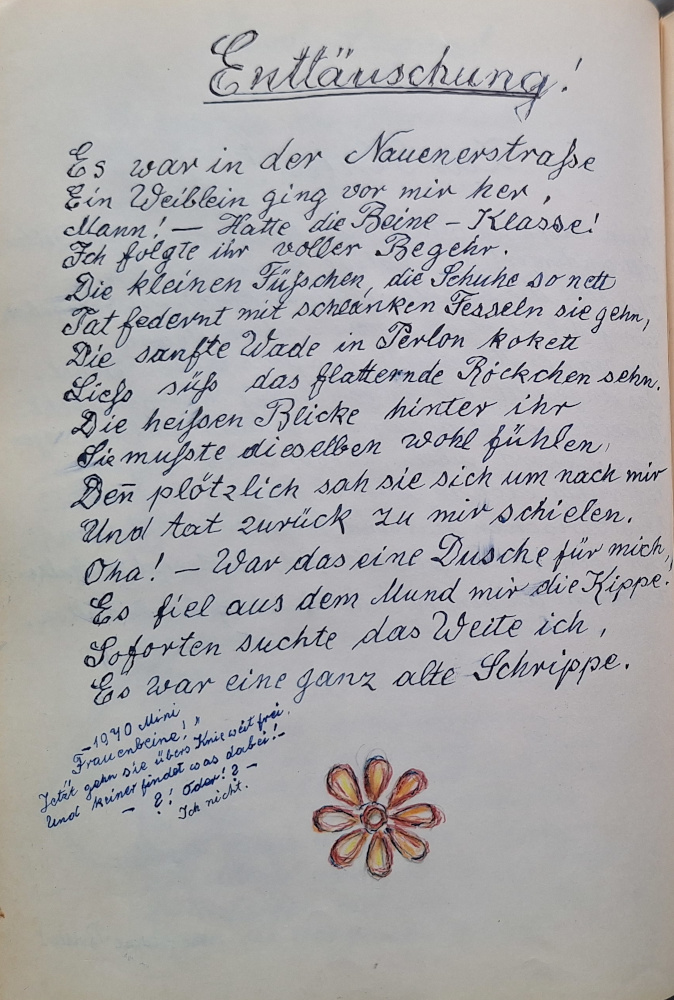 Enttäuschung!
Es war in der Nauenerstraße
Ein Weiblein ging vor mir her,
Mann! — Hatte die Beine – Klasse!
Ich folgte ihr voller Begehr.
Die kleinen Füßchen, die Schuhe so nett
Tat federnt mit schlanken Fesseln sie gehn,
Die sanfte Wade in Perlon kokett
Ließ süß das flatternde Röckchen sehn.
Die heißen Blicke hinter ihr
Sie mußte dieselben wohl fühlen,
Den̄ plötzlich sah sie sich um nach mir
Und tat zurück zu mir schielen.
Oha! — War das eine Dusche für mich,
Es fiel aus dem Mund mir die Kippe.
Soforten suchte das Weite ich,
Es war eine ganz alte Schrippe.
– 1970 Mini
"Frauenbeine!"
Jetzt gehn sie übers Knie weit frei.
Und keiner findet was dabei! –
– ?! Oder!? –
Ich nicht.